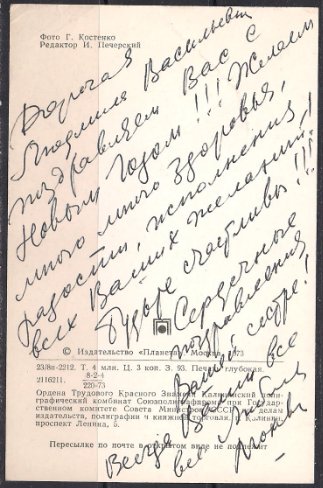 Фото Г. Костенко
Редактор И. Печерский
Дорогая
Людмила Васильевна
поздравляем Вас с
Новым Годом!!! Желаем
много много здоровья,
радости, исполнения
всех Ваших желаний!
Будьте счастливы!!!
Сердечные
поздравления
Вашей сестре!
Всегда Ваши все
© Издательство «Планета» Москва 1973
23/8а-2212. Т. 4 млн. Ц. 3 коп. З. 93. Печать глубокая.
8-2-4
2116211.
220-73
Ордена Трудового Красного Знамени Калининский поли-
графический комбинат Союзполиграфпрома при Госу-
дарственном комитете Совета Министров СССР по делам
издательств, полиграфии и книжной торговли, г. Калинин,
проспект Ленина, 5.
Пересылке по почте в открытом виде не подлежит